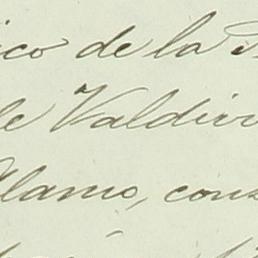 ico de la
de Valdivi
Alamo, cons